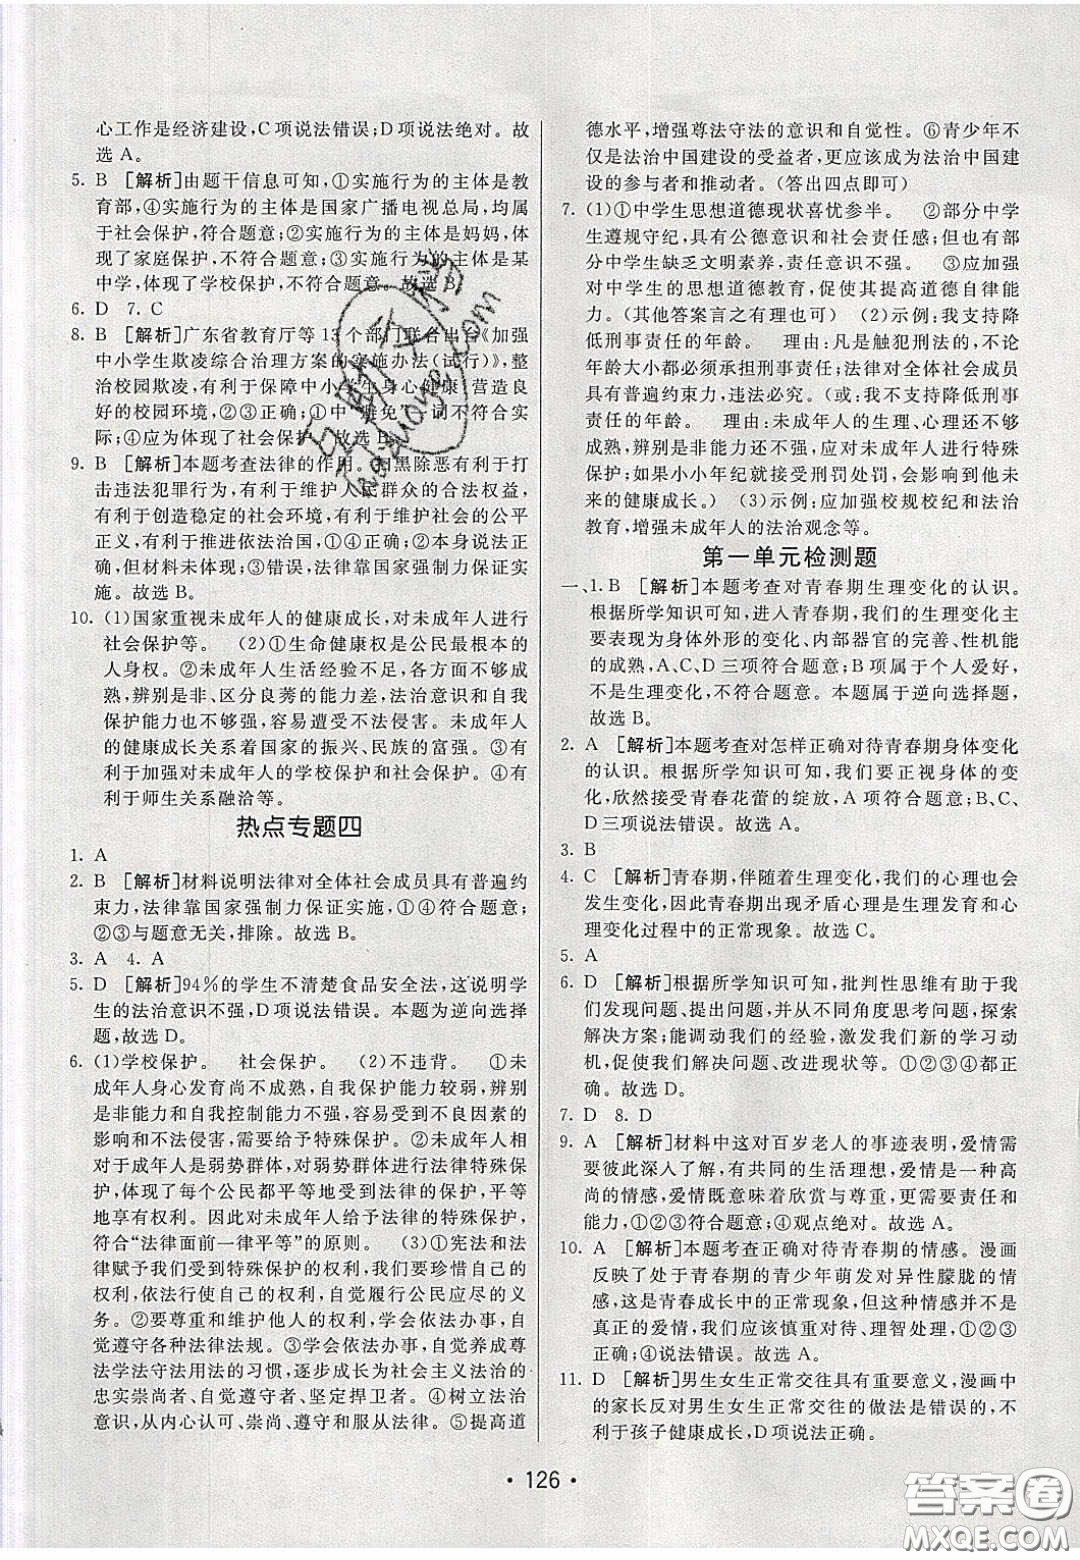 心工作是经济建设,C项说法错误;D项说法绝对。故
选A。
5. B [解析]由题干信息可知,①实施行为的主体是教
育部,④实施行为的主体是国家广播电视总局,均属
于社会保护,符合题意;②实施行为的主体是妈妈,体
现了家庭保护,不符合题意;③实施行为的主体是某
中学,体现了学校保护,不符合题意。故选B。
6. D 7. C
8. B [解析]广东省教育厅等13个部门联合出台《加强
中小学生欺凌综合治理方案的实施办法(试行)》,整
治校园欺凌,有利于保障中小学生身心健康,营造良
好的校园环境,②③正确;①中“避免”一词不符合实
际;④应为体现了社会保护。故选B。
9. B [解析]本题考查法律的作用。扫黑除恶有利于打
击违法犯罪行为,有利于维护人民群众的合法权益,
有利于创造稳定的社会环境,有利于维护社会的公平
正义,有利于推进依法治国,①④正确;②本身说法正
确,但材料没有体现;③错误,法律靠国家强制力保证
实施。故选B。
10. (1)国家重视未成年人的健康成长,对未成年人进行
社会保护等。 (2)①生命健康权是公民最根本的
人身权。②未成年人生活经验不足,各方面还不够成
熟,辨别是非、区分良莠的能力差,法治意识和自我
保护能力也不够强,容易遭受不法侵害。未成年人
的健康成长关系着国家的振兴、民族的富强。③有
利于加强对未成年人的学校保护和社会保护。④有
利于师生关系融洽等。
热点专题四
1. A
2. B [解析]材料说明法律对全体社会成员具有普遍约
束力,法律靠国家强制力保证实施,①④符合题意;
②③与题意无关,排除。故选B。
3. A 4. A
5. D [解析]94%的学生不清楚食品安全法,这说明学
生的法治意识不强,D项说法错误。本题为逆向选择
题,故选D。
6. (1)学校保护。 社会保护。 (2)不违背。 ①未
成年人身心发育尚不成熟,自我保护能力较弱,辨别
是非能力和自我控制能力不强,容易受到不良因素的
影响和不法侵害,需要给予特殊保护。②未成年人相
对于成年人是弱势群体,对弱势群体进行法律特殊保
护,体现了每个公民都平等地受到法律的保护,平等
地享有权利。因此对未成年人给予法律的特殊保护,
符合“法律面前一律平等”的原则。 (3)①宪法和法
律赋予我们受特殊保护的权利,我们要珍惜自己的权
利,依法行使自己的权利,自觉履行公民应尽的义
务。②要尊重和维护他人的权利,依法办事,自
觉遵守各种法律法规。③学会依法办事,自觉养成尊
法学法守法用法的习惯,逐步成长为社会主义法治的
忠实崇尚者、自觉遵守者、坚定捍卫者。④树立法治
意识,从内心认可、崇尚、遵守和服从法律。⑤提高道
德水平,增强尊法守法的意识和自觉性。⑥青少年不
仅是法治中国建设的受益者,更应该成为法治中国建
设的参与者和推动者。(答出四点即可)
7. (1)①中学生思想道德现状喜忧参半。 ②部分中学
生遵规守纪,具有公德意识和社会责任感;但也有部
分中学生缺乏文明素养,责任意识不强。 ③应加强
对中学生的思想道德教育,促使其提高道德自律能
力。(其他答案言之有理也可) (2)示例:我支持降
低刑事责任的年龄。 理由:凡是触犯刑法的,不论
年龄大小都必须承担刑事责任;法律对全体社会成员
具有普遍约束力,违法必究。(或:我不支持降低刑事
责任的年龄。 理由:未成年人的生理、心理还不够
成熟,辨别是非能力还不强,应对未成年人进行特殊
保护;如果小小年纪就接受刑罚处罚,会影响到他未
来的健康成长。) (3)示例:应加强校规校纪和法治
教育,增强未成年人的法治观念等。
第一单元检测题
一、1. B [解析]本题考查对青春期生理变化的认识。
根据所学知识可知,进入青春期,我们的生理变化主
要表现为身体外形的变化、内部器官的完善、性机能
的成熟,A、C、D三项符合题意;B项属于个人爱好,
不是生理变化,不符合题意。本题属于逆向选择题,
故选B。
2. A [解析]本题考查对怎样正确对待青春期身体变化
的认识。根据所学知识可知,我们要正视身体的变
化,欣然接受青春花蕾的绽放,A项符合题意;B、C、
D三项说法错误。故选A。
3. B
4. C [解析]青春期,伴随着生理变化,我们的心理也会
发生变化,因此青春期出现矛盾心理是生理发育和心
理变化过程中的正常现象。故选C。
5. A
6. D [解析]根据所学知识可知,批判性思维有助于我
们发现问题、提出问题,并从不同角度思考问题,探索
解决方案;能调动我们的经验,激发我们新的学习动
机,促使我们解决问题、改进现状等。①②③④都正
确。故选D。
7. D 8. D
9. A [解析]材料中这对百岁老人的事迹表明,爱情需
要彼此深入了解,有共同的生活理想,爱情是一种高
尚的情感,爱情既意味着欣赏与尊重,更需要责任和
能力,①②③符合题意;④观点绝对。故选A。
10. A [解析]本题考查正确对待青春期的情感。漫画
反映了处于青春期的青少年萌发对异性朦胧的情
感,这是青春成长中的正常现象,但这种情感并不是
真正的爱情,我们应该慎重对待、理智处理,①②③
正确;④说法错误。故选A。
11. D [解析]男生女生正常交往具有重要意义,漫画中
的家长反对男生女生正常交往的做法是错误的,不
利于孩子健康成长,D项说法正确。
· 126 ·
答案圈
MXQE.COM